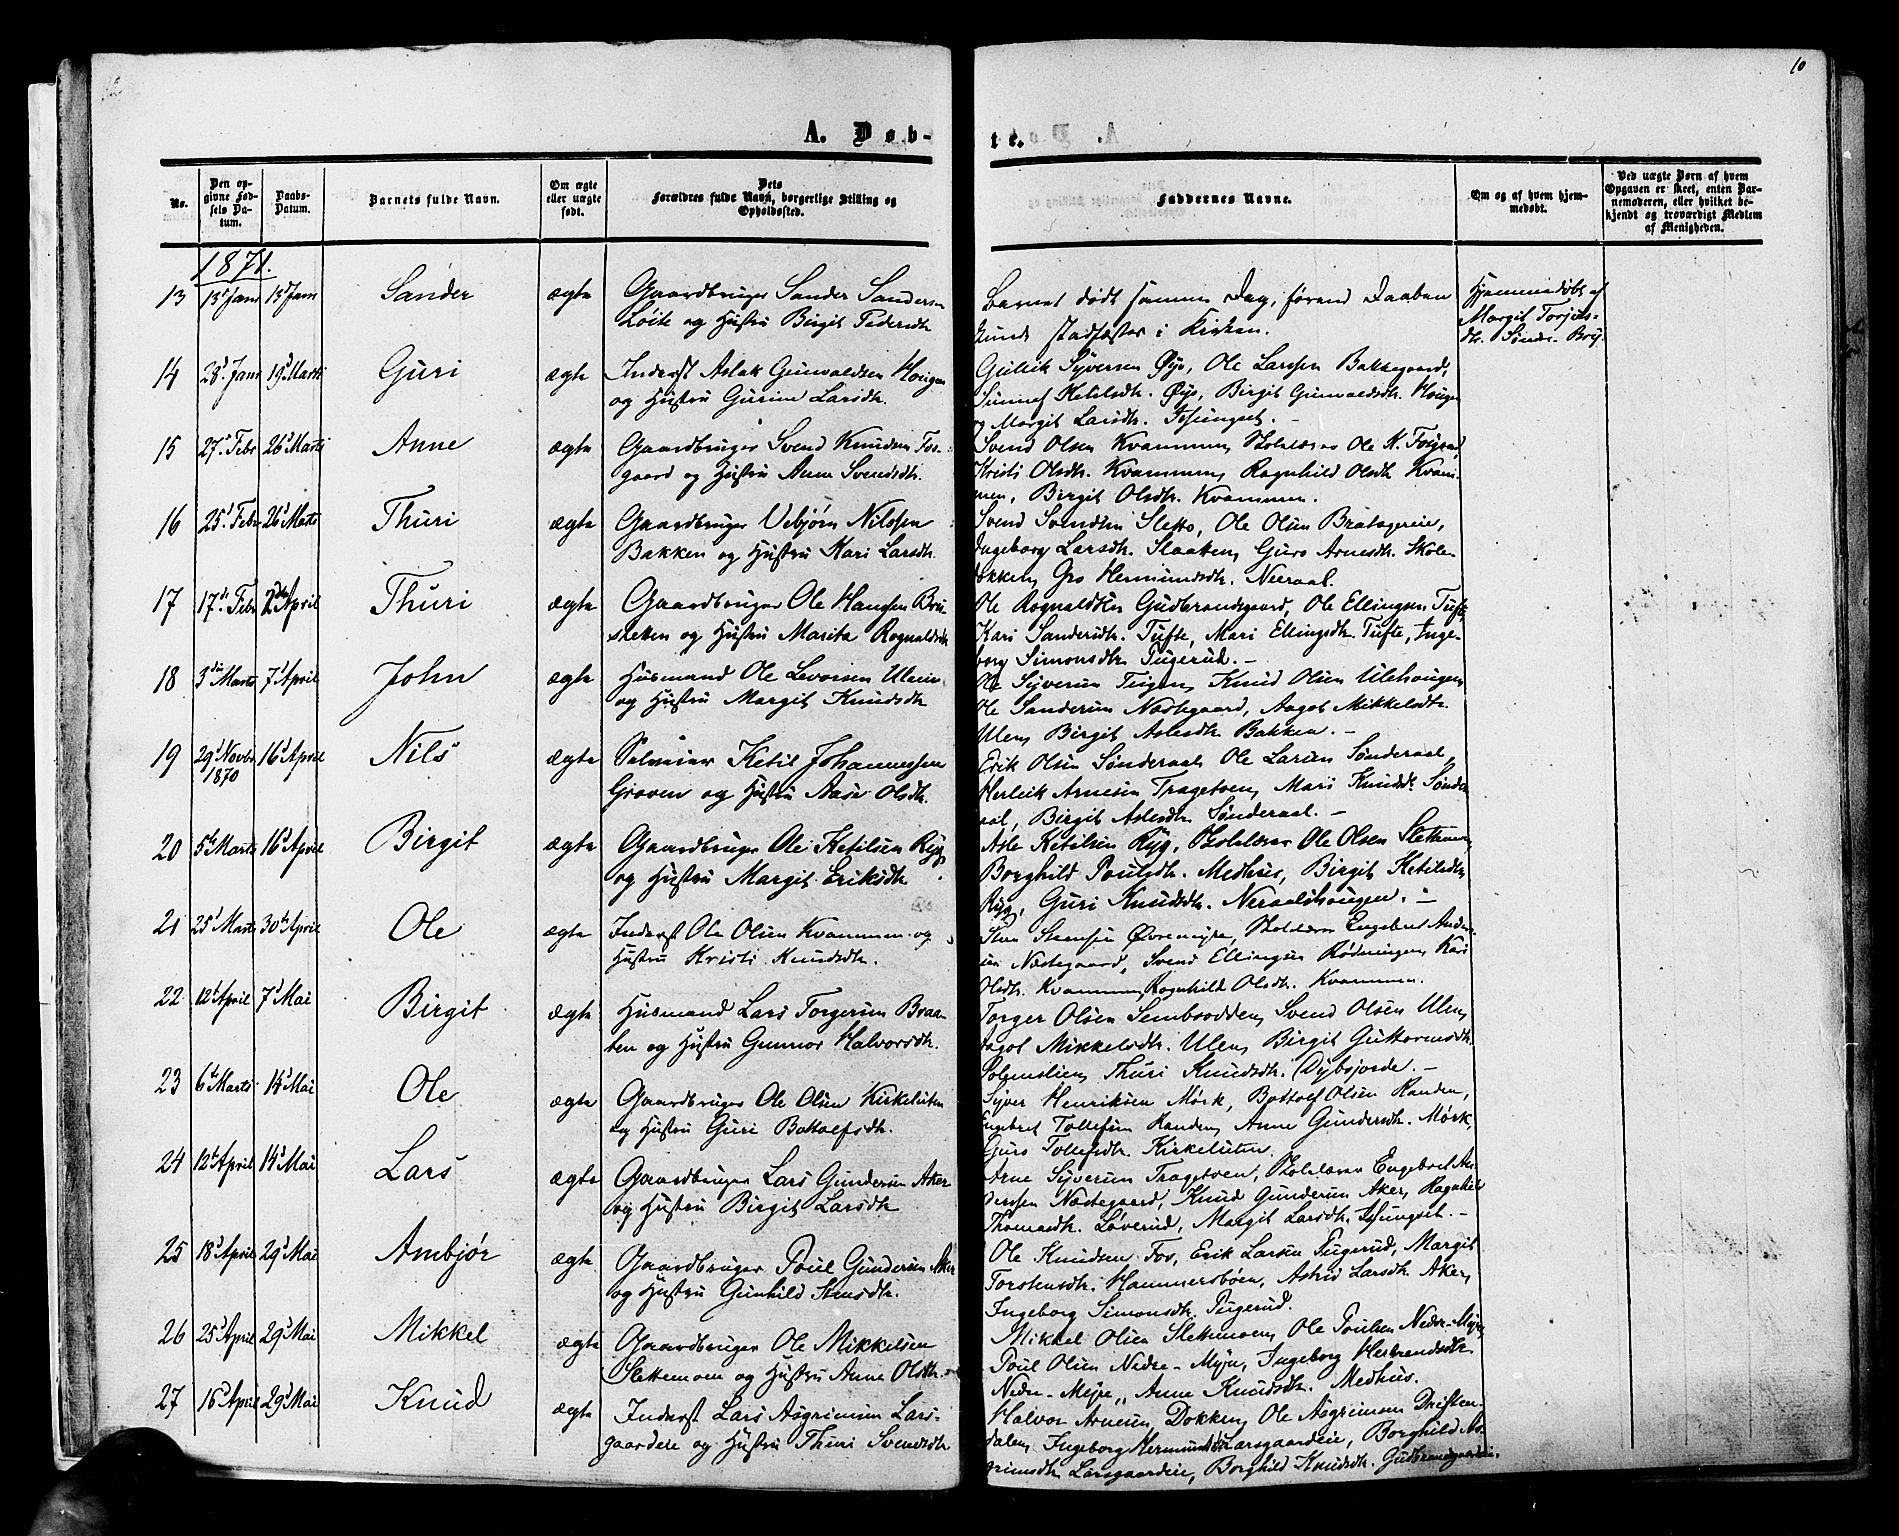 10
A. Døb-
te.
No.
Den op-
givne Fød-
sels Da-
tum.
Daabs-
Datum.
Barnets fulde Navn.
Om ægte
eller uægte
født.
Dets
Forældres fulde Navn, borgerlige Stilling og
Opholdssted.
Faddernes Navne.
Om og af hvem hjem-
medøbt.
Ved uægte Børn af hvem
Opgaven er skeet, enten Bar-
nemoderen, eller hvilket be-
kjendt og troværdigt Medlem
af Menigheden.
1871.
13 13d Jan 13d Jan Sander ægte Gaardbruger Sander Sandersen
Løite og Hustru Birgit Pedersdtr.
Barnet dødt samme Dag, førend Daaben
kunde stadfæstes i Kirken.
Hjemmedøbt af
Margit Torjus-
dtr. Søndr. Bry.
14 28d Jan 19d Marts Guri ægte Inderst Aslak Gunvaldsen Hougen
og Hustru Gurine Larsdtr.
Gullik Syversen Øyo, Ole Larssen Bakkegaard,
Sunnef Ketilsdtr. Øyo, Birgit Gunvaldsdtr. Hougen
og Margit Larsdtr.
15 27d Febr 26d Marts Anne ægte Gaardbruger Svend Knudsen Fos-
gaard og Hustru Anne Svendsdtr.
Svend Olsen Kvammen, Skolelærer Ole K. Fosgaard,
Kristi Olsdtr. Kvammen, Ragnhild Olsdtr. Kvam-
men, Birgit Olsdtr. Kvammen.
16 25d Febr 26d Marts Thuri ægte Gaardbruger Vebjørn Nilssen
Bakken og Hustru Kari Larsdtr.
Svend Svendsen Sletto, Ole Olsen Bratageie,
Ingeborg Larsdtr. Slaatten, Guro Arnesdtr. Skole-
bakken, Gro Hermundsdtr. Neeraal.
17 17de Febr 2den April Thuri ægte Gaardbruger Ole Hanssen Bru-
sletten og Hustru Marita Rognaldsdtr
Ole Rognaldsen Gudbrandsgaard, Ole Ellingsen Tufte,
Kari Sandersdtr. Tufte, Mari Ellingsdtr. Tufte, Inge-
borg Simonsdtr. Tugerud. -
18 3die Marts 7d April John ægte Husmand Ole Levorsen Ulein
og Hustru Margit Knudsdtr
Ole Syversen Teigen, Knud Olsen Ulehougen,
Ole Sandersen Nestegaard, Aagot Mikkelsdtr.
Ulen, Birgit Aslesdtr. Bakken. -
19 29d Novbr 1870 16d April Nils ægte Selveier Ketil Johannessen
Groven og Hustru Aase Olsdtr.
Erik Olsen Sønderaal, Ole Larsen Sønderaal,
Herleik Arnesen Tragetoen, Mari Knudsdtr. Sønder-
aal, Birgit Aslesdtr. Sønderaal. -
20 5te Marts 16d April Birgit ægte Gaardbruger Ole Ketilsen Rygg
og Hustru Margit Eriksdtr
Asle Ketilsen Rygg, Skolelærer Ole Olsen Slettemoen,
Borghild Poulsdtr. Medhus, Birgit Ketilsdtr.
Rygg, Guri Knudsdtr. Neraalshougen. -
21 25d Marts 30te April Ole ægte Inderst Ole Olsen Kvammen og
Hustru Kristi Knudsdtr.
Steensen Øvremyre, Skolelærer Engebret Ander-
sen Nestegaard, Svend Ellingsen Rødningen, Kari
Olsdtr. Kvammen, Ragnhild Olsdtr. Kvammen.
22 12te April 7d Mai Birgit ægte Husmand Lars Torgersen Braa-
ten og Hustru Gunnor Halvorsdtr.
Torger Olsen Sembsodden, Svend Olsen Ulen,
Aagot Mikkelsdtr. Ulen, Birgit Guttormsdtr.
Solemslien, Thuri Knudsdtr. Dybsjorde. -
23 6te Marts 14d Mai Ole ægte Gaardbruger Ole Olsen Kirkeluten
og Hustru Guri Bottolfsdtr.
Syver Henriksen Mørk, Bottolf Olsen Randen,
Engebret Tollefsen Randen, Anne Gundersdtr. Mørk,
Guro Tollefsdtr. Kirkeluten.
24 12te April 14d Mai Lars ægte Gaardbruger Lars Gundersen Aker
og Hustru Birgit Larsdtr
Arne Syversen Tragetoen, Skolelærer Engebret An-
derssen Nestegaard, Knud Gundersen Aker, Ragnhild
Thomasdtr. Løverud, Margit Larsdtr.
25 18d April 29d Mai Ambjør ægte Gaardbruger Poul Gundersen Aker
og Hustru Gunhild Stensdtr.
Ole Knudsen Fos, Erik Larsen Tugerud, Margit
Torstensdtr. Hammersbøen, Astrid Larsdtr. Aker,
Ingeborg Simonsdtr. Tugerud.
26 25d April 29d Mai Mikkel ægte Gaardbruger Ole Mikkelsen
Slettemoen og Hustru Anne Olsdtr.
Mikkel Olsen Slettemoen, Ole Poulsen Nedre-Myre,
Poul Olsen Nedre-Myre, Ingeborg Herbrandsdtr.
Nedre-Myre, Anne Knudsdtr. Medhus.
27 16d April 29d Mai Knud ægte Inderst Lars Asgrimsen Lars-
gaardeie og Hustru Thuri Svendsdtr
Halvor Arnesen Dokken, Ole Asgrimsen Driften-
dalen, Ingeborg Hermundsdtr Larsgaardeie, Borghild As-
grimsdtr. Larsgaardeie, Borghild Knudsdtr. Gudbrandsgaardeie.